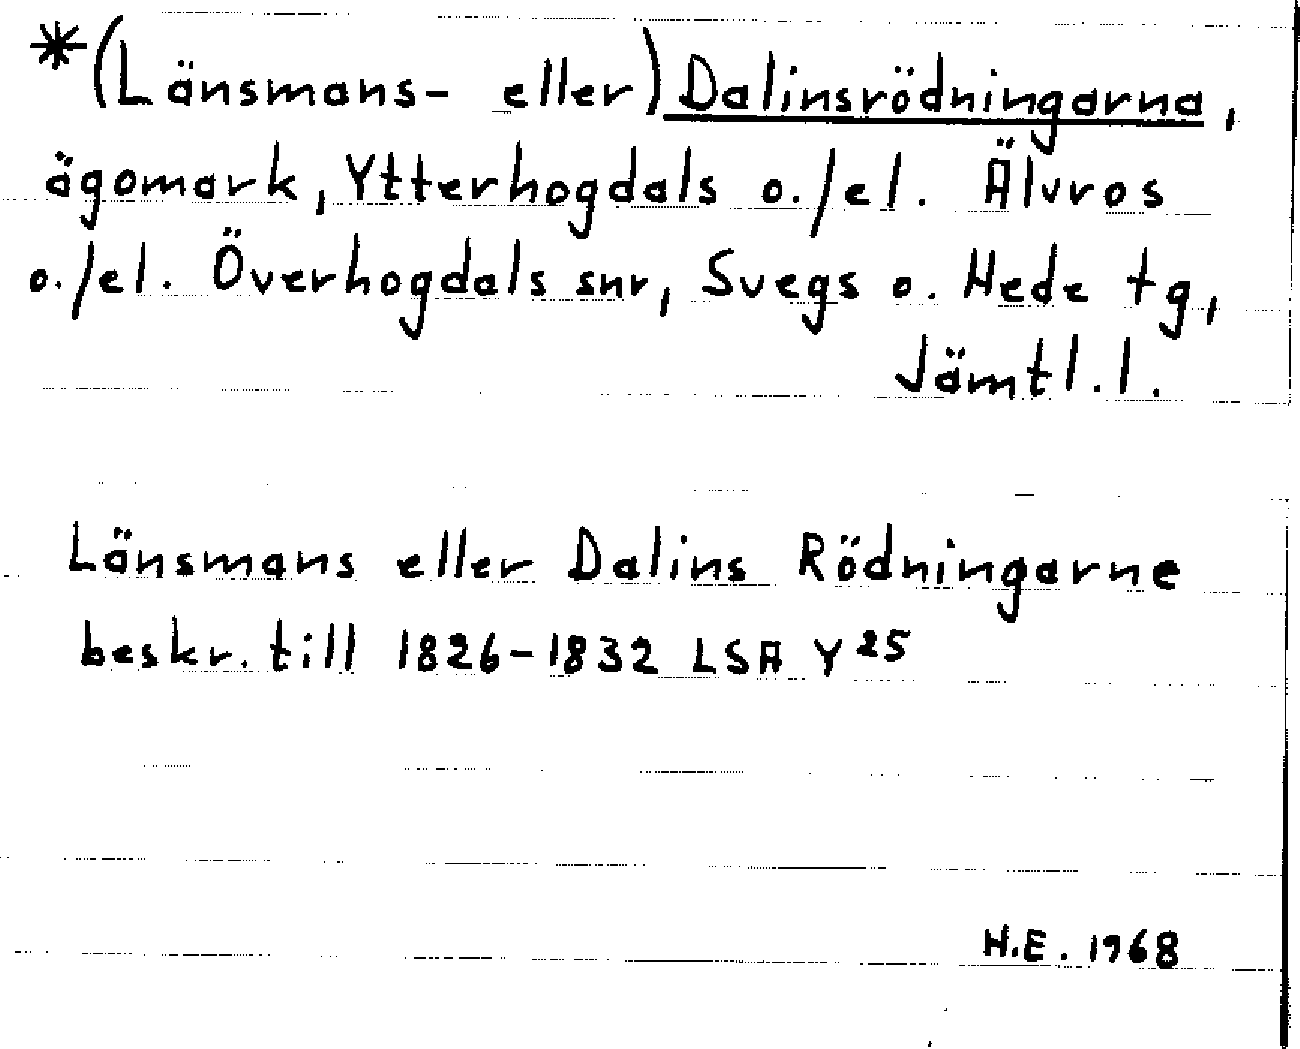 *(Länsmans- eller) Dalinsrödningarna,
ägomark, Ytterhogdals o./el. Älvros
o./el. Överhogdals snr, Svegs o. Hede tg,
Jämtl.l.
Länsmans eller Dalins Rödningarne
beskr. till 1826-1832 LSA Y²⁵
H.E. 1968